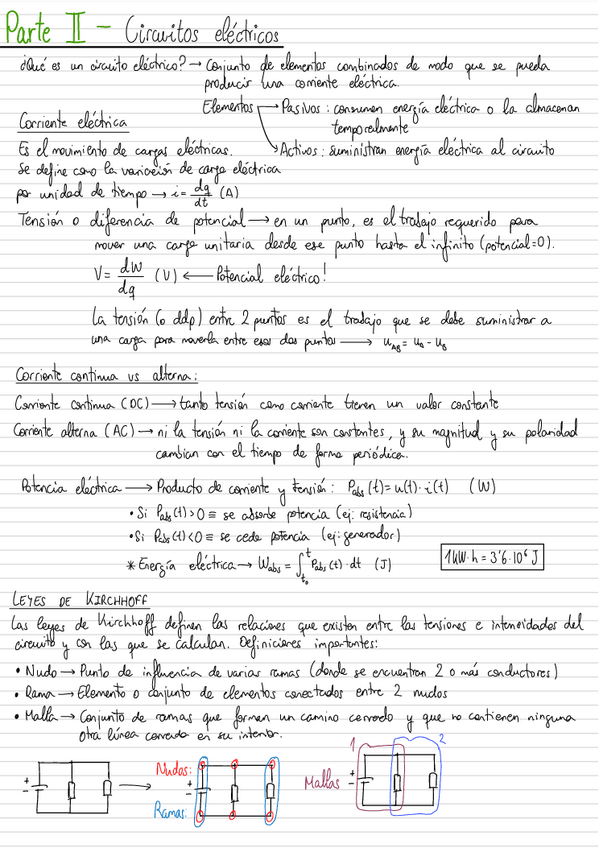 Parte II - Circuitos eléctricos
¿Qué es un circuito eléctrico? → Conjunto de elementos combinados de modo que se pueda
producir una corriente eléctrica.
Elementos → Pasivos: consumen energía eléctrica o la almacenan
temporalmente
Corriente eléctrica
Es el movimiento de cargas eléctricas. → Activos: suministran energía eléctrica al circuito
Se define como la variación de carga eléctrica
por unidad de tiempo → i = dq/dt (A)
Tensión o diferencia de potencial → en un punto, es el trabajo requerido para
mover una carga unitaria desde ese punto hasta el infinito (potencial=0).
V = dW/dq (V) ← Potencial eléctrico!
La tensión (o ddp) entre 2 puntos es el trabajo que se debe suministrar a
una carga para moverla entre esos dos puntos → u_AB = u_A - u_B
Corriente continua vs alterna:
Corriente continua (DC) → tanto tensión como corriente tienen un valor constante
Corriente alterna (AC) → ni la tensión ni la corriente son constantes, y su magnitud y su polaridad
cambian con el tiempo de forma periódica.
Potencia eléctrica → Producto de corriente y tensión: P_abs(t) = u(t)·i(t) (W)
• Si P_abs(t)>0 ≡ se absorbe potencia (ej: resistencia)
• Si P_abs(t)<0 ≡ se cede potencia (ej: generador)
* Energía eléctrica → W_abs = ∫_{t_0}^{t} P_abs(t)·dt (J)
1kW·h = 3'6·10⁶ J
LEYES DE KIRCHHOFF
Las leyes de Kirchhoff definen las relaciones que existen entre las tensiones e intensidades del
circuito y con las que se calculan. Definiciones importantes:
• Nudo → Punto de influencia de varias ramas (donde se encuentran 2 o más conductores)
• Rama → Elemento o conjunto de elementos conectados entre 2 nudos
• Malla → Conjunto de ramas que forman un camino cerrado y que no contienen ninguna
otra línea cerrada en su interior.
1 2
Nudos:
+ - + - Mallas + -
Ramas: